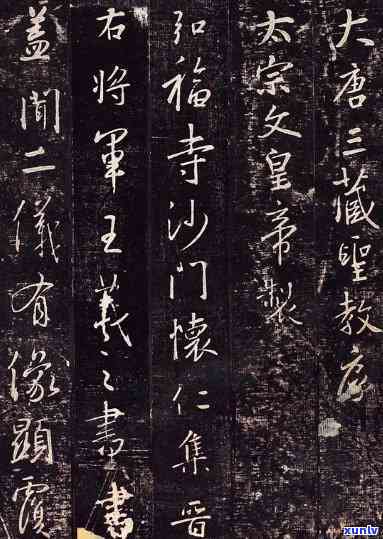 大唐三藏聖教序
太宗文皇帝製
弘福寺沙門懷仁集晉
右將軍王羲之書
蓋聞二儀有像顯覆
xunlv